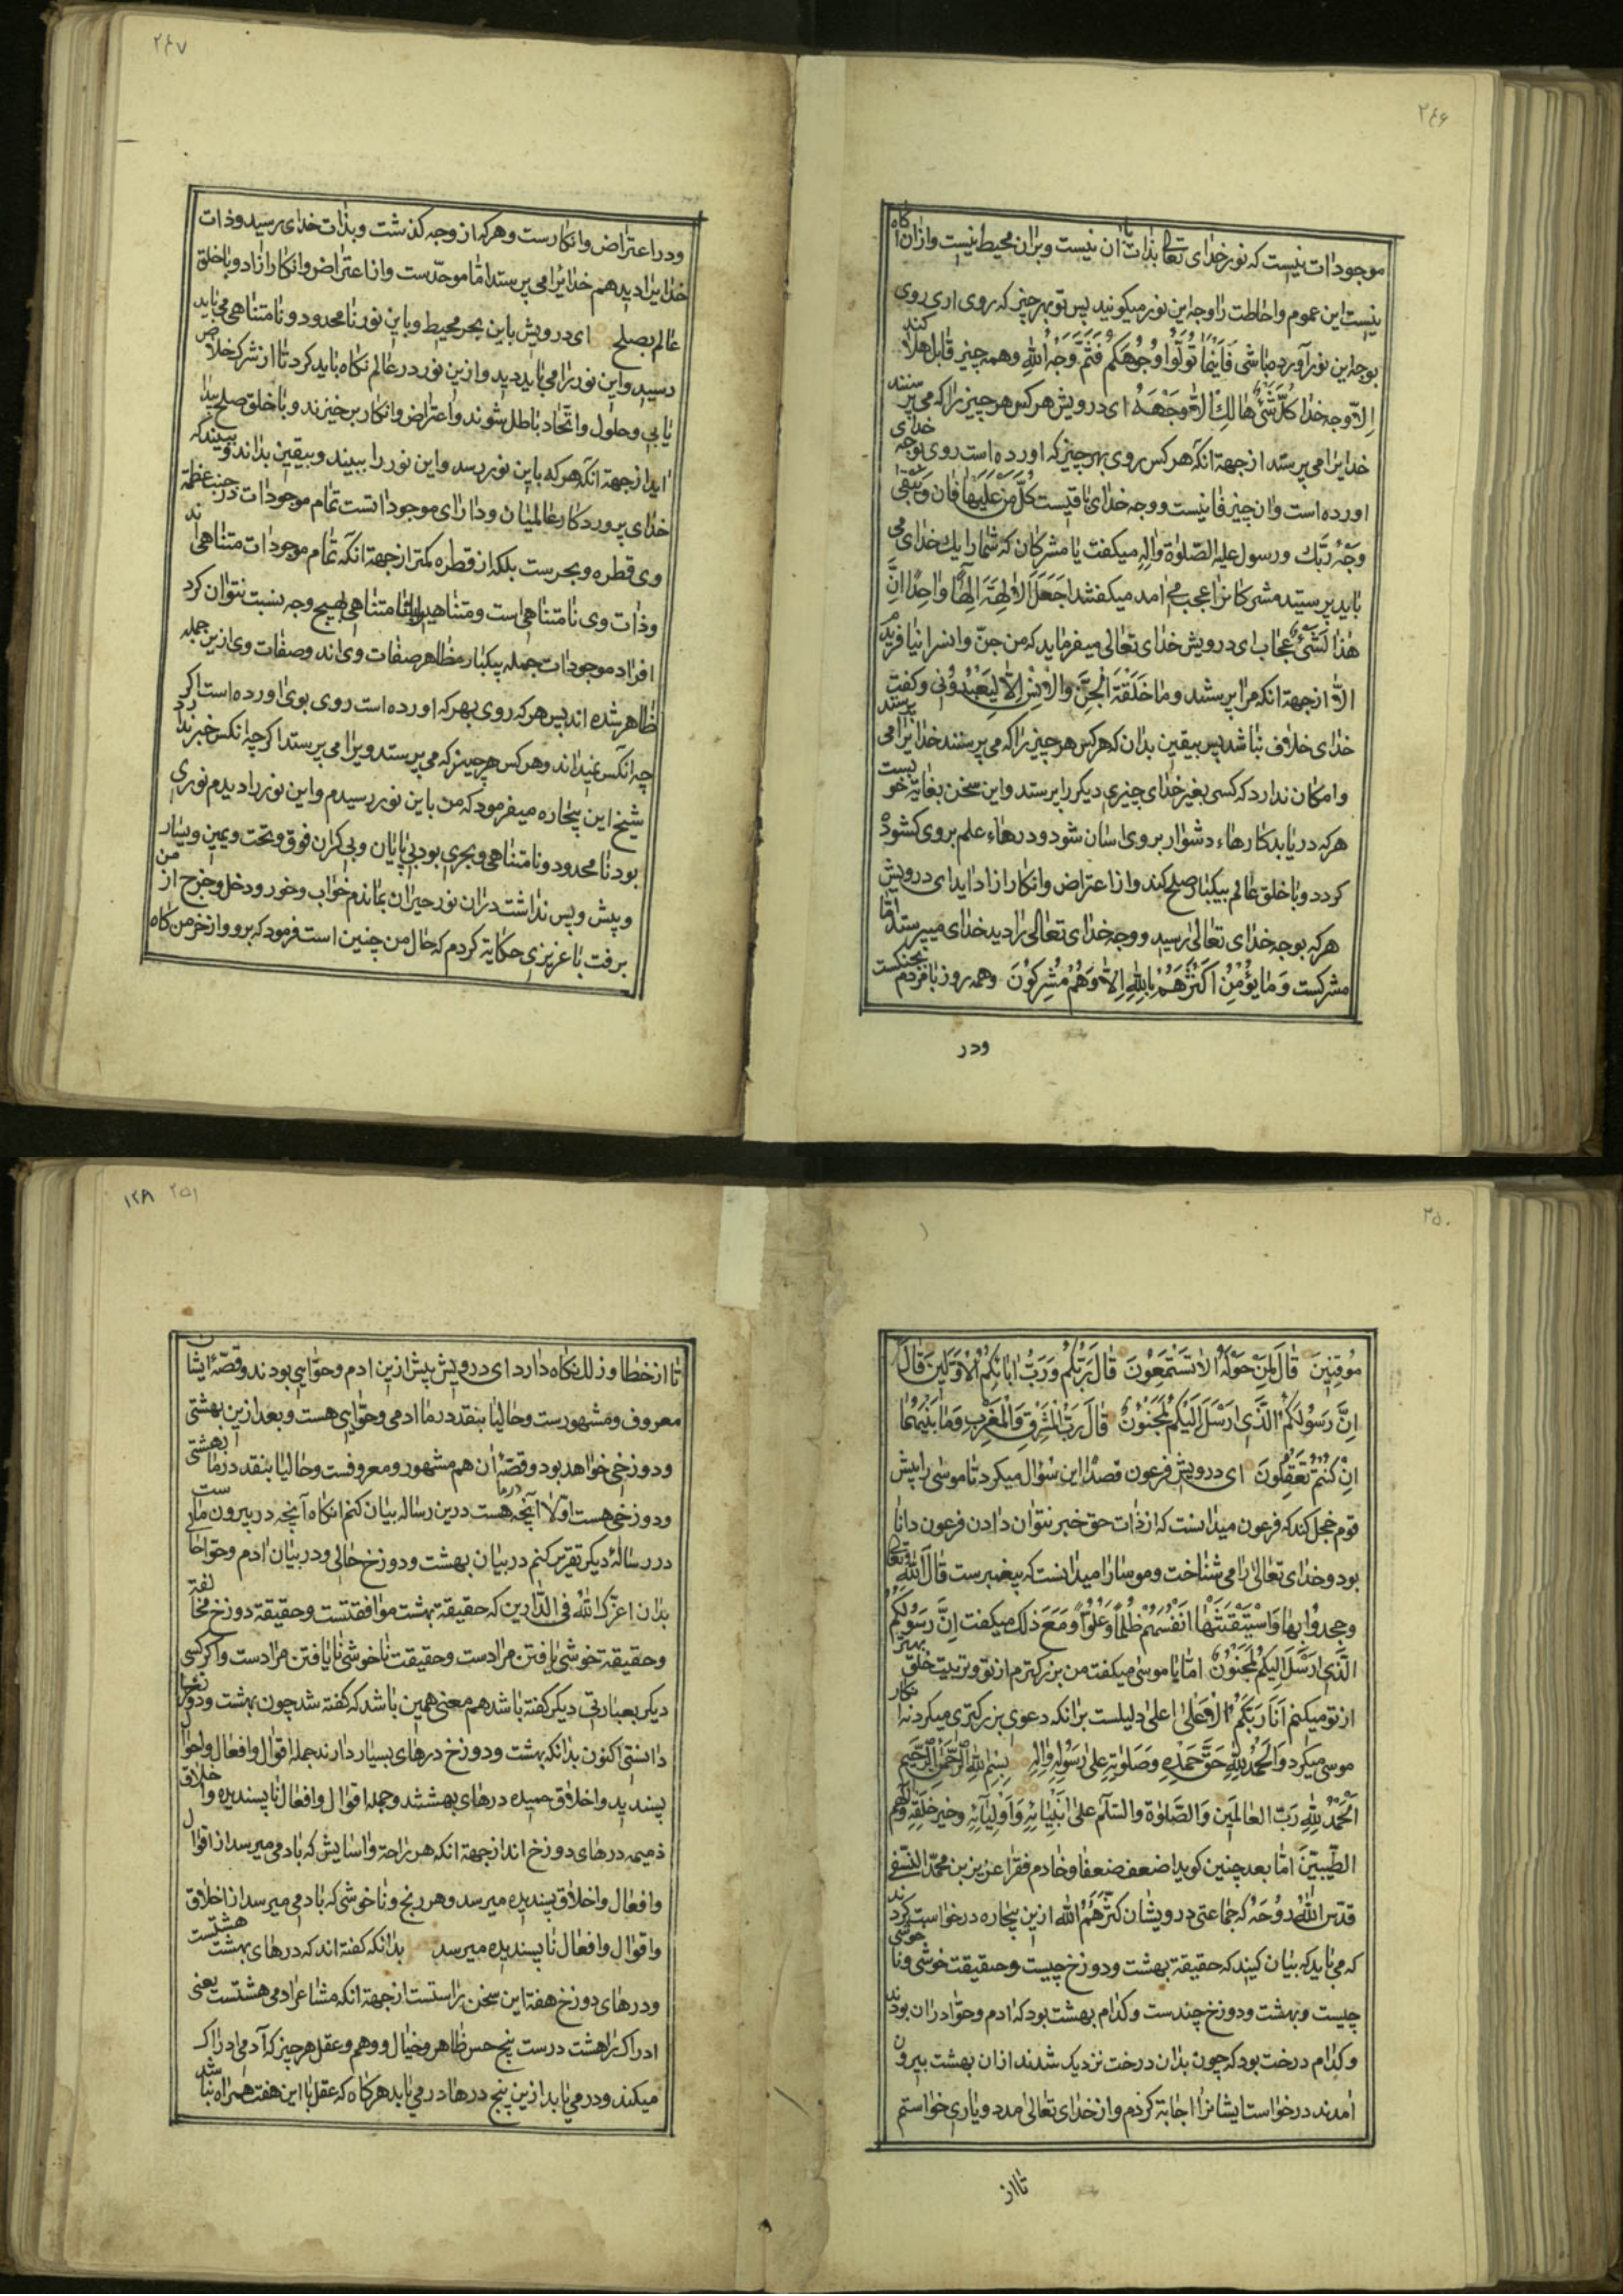 ۲۴۶
موجودات نیست که نور خدای تعالی بذات با ان نیست وبران محیط نیست وازان اکاه
نیست این عموم واحاطت را وجه این نور میکویند پس تو بهر چیز که روی اری روی
بوجه این نور آورده باشی فَاَیْنَمٰا تُوَلّوُا وُجُوُهَکُمْ فَثَمَّ وَجْهُ اللهِ وهمه چیز قابل هلا کند
اِلاّ وجه خدا کُلُّ شَیْءٍ هٰالِكٌ اِلاّٰ وَجْهَهُ ای درویش هر کس هر چیز را که می پر ستند
خدایرا می پرستد از جهة انکه هر کس روی بهر چیز که اورده است روی بوجه خدای
اورده است وان چیز فانیست ووجه خدای باقیست کُلُّ مَنْ عَلَیْهٰا فٰانٍ وَیَبْقیٰ
وَجْهُ رَبِّكَ ورسول علیه الصّلوٰة وآله میکفت با مشرکان که شما را یك خدای می
باید پرستید مشرکانرا عجب می امد میکفتند اَجَعَلَ الْاٰلِهَةَ اِلٰهًا وٰاحِدًا اِنَّ
هٰذٰا لَشَیْءٌ عُجٰاب ای درویش خدای تعالی میفرماید که من جنّ وانسرا نیافریدم
الاّ از جهة انکه مرا پرستند وَمٰا خَلَقْتُ الْجِنَّ وَالْاِنْسَ اِلاّٰ لِیَعْبُدُونِ وکفت
خدای خلاف نباشد پس بیقین بدان که هر کس هر چیز را که می پرستند خدایرا می پرستند
وامکان ندارد که کسی بغیر خدای چیزی دیکر را پرستد واین سخن بغایة خو بست
هر که دریابد کارهاء دشوار بروی اسان شود ودرهاء علم بروی کشوده
کردد وبا خلق عالم بیکبار صلح کند واز اعتراض وانکار ازاد اید ای درویش
هر که بوجه خدای تعالی رسید ووجه خدای تعالی را دید خدای میپرستد امّا
مشرکست وَمٰا یُؤْمِنُ اَکْثَرُهُمْ بِاللهِ اِلاّٰ وَهُمْ مُشْرِکوُنَ وهمه روز با مردم بجنکست
ودر
۲۴۷
ودر اعتراض وانکارست وهر که از وجه کذشت وبذات خدای رسید وذات
خدایرا دید هم خدایرا می پرستد امّا موحّدست واز اعتراض وانکار ازاد وبا خلق
عالم بصلح ای درویش باین بحر محیط وباین نور نامحدود ونامتناهی می باید
رسید واین نور را می باید دید وازین نور در عالم نکاه باید کرد تا از شرک خلاص
یابی وحلول واتّحاد باطل شوند واعتراض وانکار برخیزند وبا خلق صلح پیدا
اید از جهة انکه هر که باین نور رسد واین نور را ببیند وبیقین بداند وببیند که
خدای پروردکار عالمیان ودارای موجوداتست تمام موجودات در جنب عظمة
وی قطره وبحرست بلکه از قطره کمتر از جهة انکه تمام موجودات متناهی اند
وذات وی نامتناهی است ومتناهیرا با نامتناهی بهیچ وجه نسبت نتوان کرد
افراد موجودات جمله بیکبار مظاهر صفات وی اند وصفات وی ازین جمله
ظاهر شده اند پس هر که روی بهر که اورده است روی بوی اورده است اکر
چه انکس نمیداند وهر کس هر چیز که می پرستد ویرا می پرستد اکر چه انکس خبر ندارد
شیخ این بیچاره میفرمود که من باین نور رسیدم واین نور را دیدم نوری
بود نامحدود ونامتناهی وبحری بود بی پایان وبی کران فوق وتحت ویمین ویسار
وپیش وپس نداشت دران نور حیران بماندم خواب وخور ودخل وخرج از من
برفت با عزیزی حکایة کردم که حال من چنین است فرمود که برو واز خرمن کاه
۲۵۰
مُوقِنینَ قٰالَ لِمَنْ حَوْلَهُ اَلاٰ تَسْتَمِعُونَ قٰالَ رَبُّکُمْ وَرَبُّ اٰبٰائِکُمُ الْاَوَّلینَ قٰالَ
اِنَّ رَسُولَکُمُ الَّذی اُرْسِلَ اِلَیْکُمْ لَمَجْنُونٌ قٰالَ رَبُّ الْمَشْرِقِ وَالْمَغْرِبِ وَمٰا بَیْنَهُمٰا
اِنْ کُنْتُمْ تَعْقِلُونَ ای درویش فرعون قصدا این سؤال میکرد تا موسی را پیش
قوم خجل کند که فرعون میدانست که از ذات حق خبر نتوان دادن فرعون دانا
بود وخدای تعالی را می شناخت وموسا را میدانست که پیغمبرست قٰالَ اللهُ تعالی
وجحدوُا بِهٰا وَاسْتَیْقَنَتْهٰا اَنْفُسُهُمْ ظُلْمًا وَعُلُوًّا وَمَعَ ذلك میکفت اِنَّ رَسُولَکُمُ
الَّذی اُرْسِلَ اِلَیْکُمْ لَمَجْنُونٌ امّا با موسی میکفت من بزرکترم از تو وتربیت خلق بهتر
از تو میکنم اَنَا رَبُّکُمُ الْاَعْلیٰ اعلی دلیلست برانکه دعوی بزرکتری میکرد نه انکار
موسی میکرد وَالْحَمْدُ لِلّٰهِ حَقَّ حَمْدِهِ وَصَلَوٰتِهِ عَلیٰ رَسُولِهِ وَاٰلِهِ بِسْمِ اللهِ الرَّحْمٰنِ الرَّحیمِ
اَلْحَمْدُ لِلّٰهِ رَبِّ الْعٰالَمینَ وَالصَّلوٰةُ وَالسَّلٰامُ عَلیٰ اَنْبِیٰائِهِ وَاَوْلِیٰائِهِ وخیر خَلْقِهِ وَاٰلِهِم
الطّیّبینَ امّا بعد چنین کوید اضعف ضعفا وخادم فقرا عزیز بن محمّد النّسفی
قدّس اللهُ رُوحَهُ که جماعتی درویشان کثّرهم الله ازین بیچاره درخواست کردند
که می باید که بیان کنید که حقیقة بهشت ودوزخ چیست وحقیقت خوشی ونا خوشی
چیست وبهشت ودوزخ چندست وکدام بهشت بود که ادم وحوّا دران بودند
وکدام درخت بود که چون بدان درخت نزدیک شدند ازان بهشت بیرون
امدند درخواست ایشانرا اجابة کردم واز خدای تعالی مدد ویاری خواستم
تا از
۲۵۱
۱۲۸
تا از خطا وزلل نکاه دارد ای درویش پیش ازین ادم وحوّایی بودند وقصّهٔ ایشان
معروف ومشهورست وحالیا بنقد در ما ادمی وحوّایی هست وبعد ازین بهشتی
ودوزخی خواهد بود وقصّهٔ ان هم مشهور ومعروفست وحالیا بنقد در ما بهشتی
ودوزخی هست اوّلا آنچه در ما هست درین رساله بیان کنم انکاه آنچه در بیرون ماست
در رسالهٔ دیکر تقریر کنم در بیان بهشت ودوزخ حالی ودر بیان ادم وحوّا حالی
بدان اعزّک الله فی الدّارین که حقیقة بهشت موافقتست وحقیقة دوزخ مخالفة
وحقیقة خوشی یافتن مرادست وحقیقت ناخوشی نایافتن مرادست واکر کسی
دیکر بعبارتی دیکر کفته باشد هم معنی همین باشد که کفته شد چون بهشت ودوزخرا
دانستی اکنون بدانکه بهشت ودوزخ درهای بسیار دارند جمله اقوال وافعال واحوال
پسندیده واخلاق حمیده درهای بهشتند وجمله اقوال وافعال ناپسندیده واخلاق
ذمیمه درهای دوزخ اند از جهة انکه هر راحة واسایش که بادمی میرسد از اقوال
وافعال واخلاق پسندیده میرسد وهر رنج وناخوشی که بادمی میرسد از اخلاق
واقوال وافعال ناپسندیده میرسد بدانکه کفته اند که درهای بهشت هشتست
ودرهای دوزخ هفة این سخن راستست از جهة انکه مشاعر ادمی هشتست یعنی
ادراک را هشت درست پنج حس ظاهر وخیال ووهم وعقل هر چیز که آدمی ادراک
میکند ودرمی یابد ازین پنج درها درمی یابد هر کاه که عقل با این هفت همراه نباشد